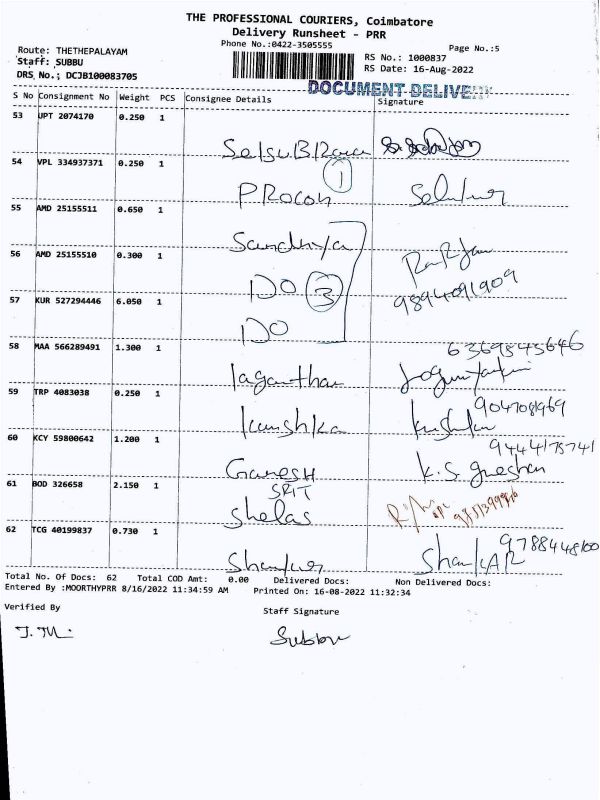 THE PROFESSIONAL COURIERS, Coimbatore
Delivery Runsheet - PRR
Phone No.:0422-3505555
Page No.:5
Route: THETHEPALAYAM
Staff: SUBBU
DRS No.; DCJB100083705
RS No.: 1000837
RS Date: 16-Aug-2022
DOCUMENT DELIVERY
S No Consignment No Weight PCS Consignee Details Signature
53 UPT 2074170 0.250 1
54 VPL 334937371 0.250 1
1
PROCON
55 AMD 25155511 0.650 1
Sandhya
56 AMD 25155510 0.300 1
DO 3
9894091909
57 KUR 527294446 6.050 1
DO
58 MAA 566289491 1.300 1
6369545646
Jaganthan
59 TRP 4083038 0.250 1
9047081969
Kanishka
60 KCY 59800642 1.200 1
9444175741
GANESH K.S. gneshan
61 BOD 326658 2.150 1
SRIT
Shelas
62 TCG 40199837 0.730 1
Shankur ShankAR
Total No. Of Docs: 62 Total COD Amt: 0.00 Delivered Docs: Non Delivered Docs:
Entered By :MOORTHYPRR 8/16/2022 11:34:59 AM Printed On: 16-08-2022 11:32:34
Verified By Staff Signature
Subbu